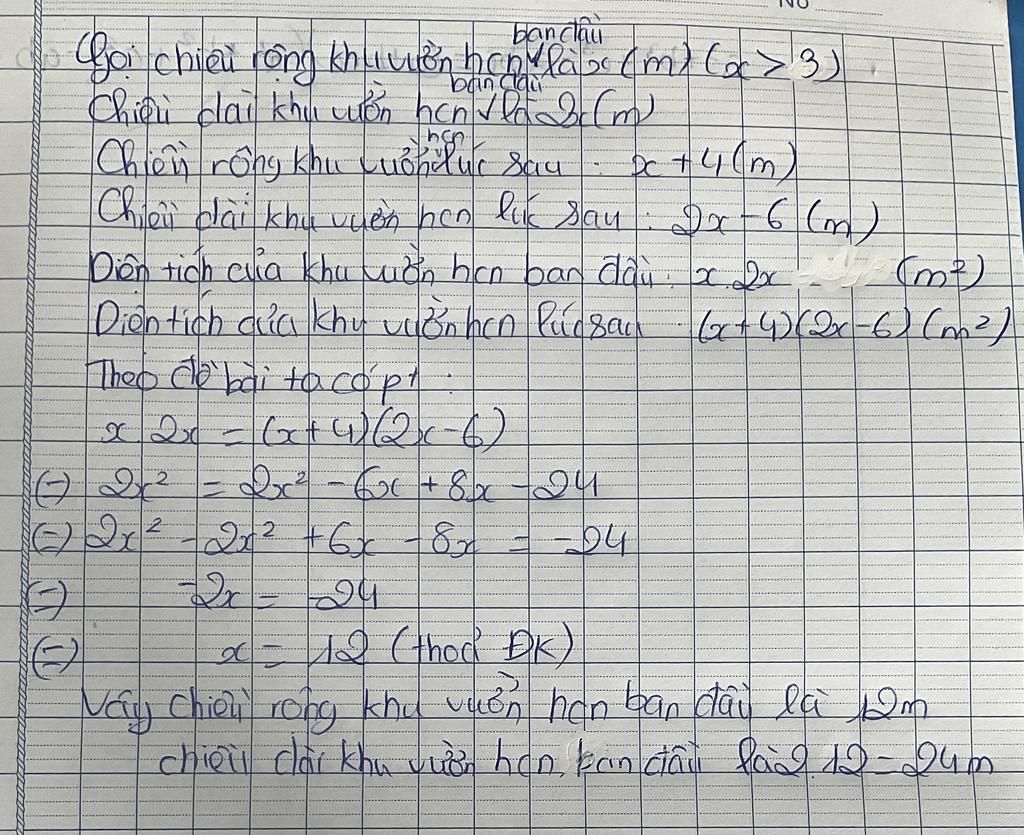 No
Gọi chiều rộng khu vườn hcn ban đầu là x (m) (x > 3)
Chiều dài khu vườn hcn ban đầu là 2x (m)
Chiều rộng khu vườn hcn lúc sau : x + 4 (m)
Chiều dài khu vườn hcn lúc sau : 2x - 6 (m)
Diện tích của khu vườn hcn ban đầu : x.2x (m²)
Diện tích của khu vườn hcn lúc sau : (x+4)(2x-6) (m²)
Theo đề bài ta có pt :
x.2x = (x+4)(2x-6)
(=) 2x² = 2x² - 6x + 8x - 24
(=) 2x² - 2x² + 6x - 8x = -24
(=) -2x = -24
(=) x = 12 (thoả ĐK)
Vậy chiều rộng khu vườn hcn ban đầu là 12m
chiều dài khu vườn hcn ban đầu là 2.12 = 24m